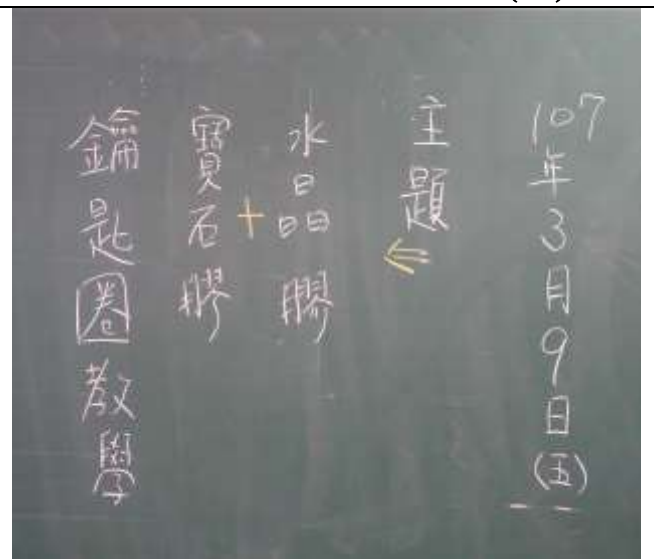 107年3月9日(五)
主題
水晶膠
+
寶石膠
鑰匙圈教學